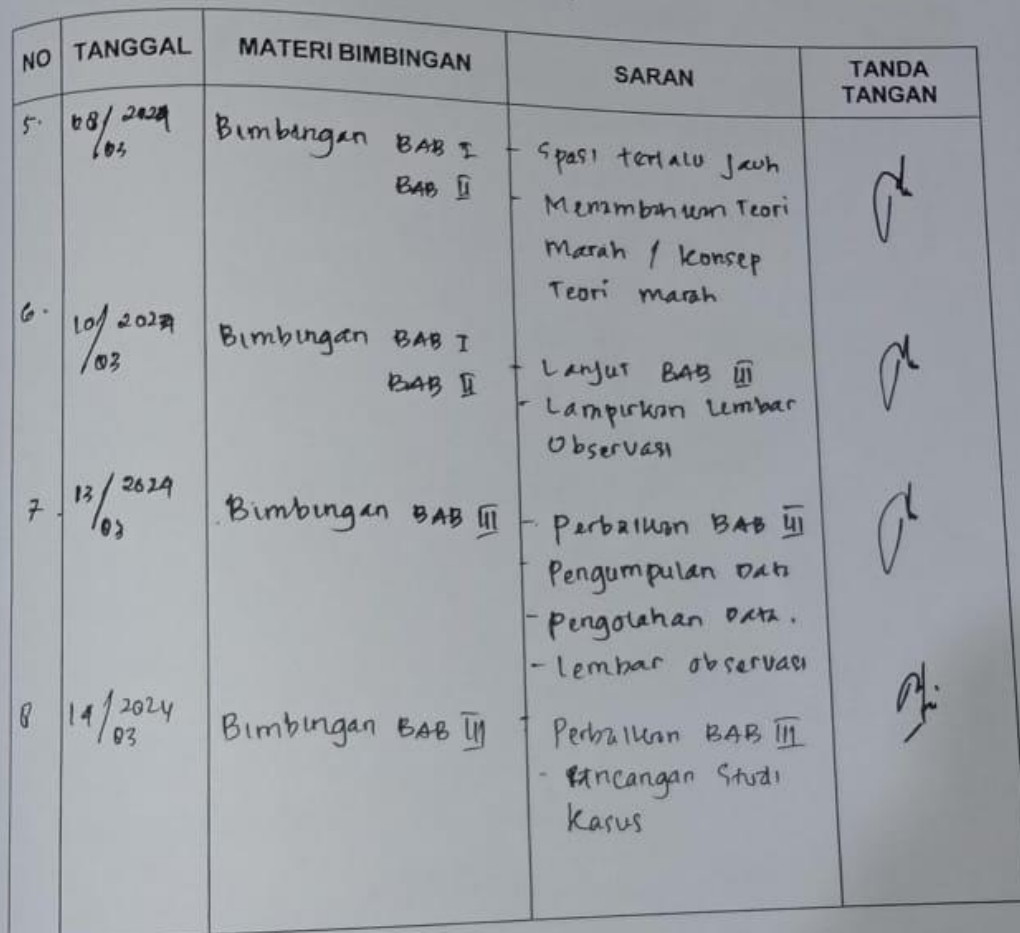 NO TANGGAL MATERI BIMBINGAN SARAN TANDA TANGAN
5. 08/03 2024 Bimbingan BAB I - Spasi terlalu Jauh
BAB II - Menambahkan Teori
Marah / Konsep
Teori marah
6. 10/03 2024 Bimbingan BAB I
BAB II - Lanjut BAB III
- Lampirkan Lembar
Observasi
7. 13/03 2024 Bimbingan BAB III - Perbaikan BAB III
- Pengumpulan Data
- Pengolahan Data.
- Lembar observasi
8 14/03 2024 Bimbingan BAB III - Perbaikan BAB III
- Rancangan Studi
Kasus